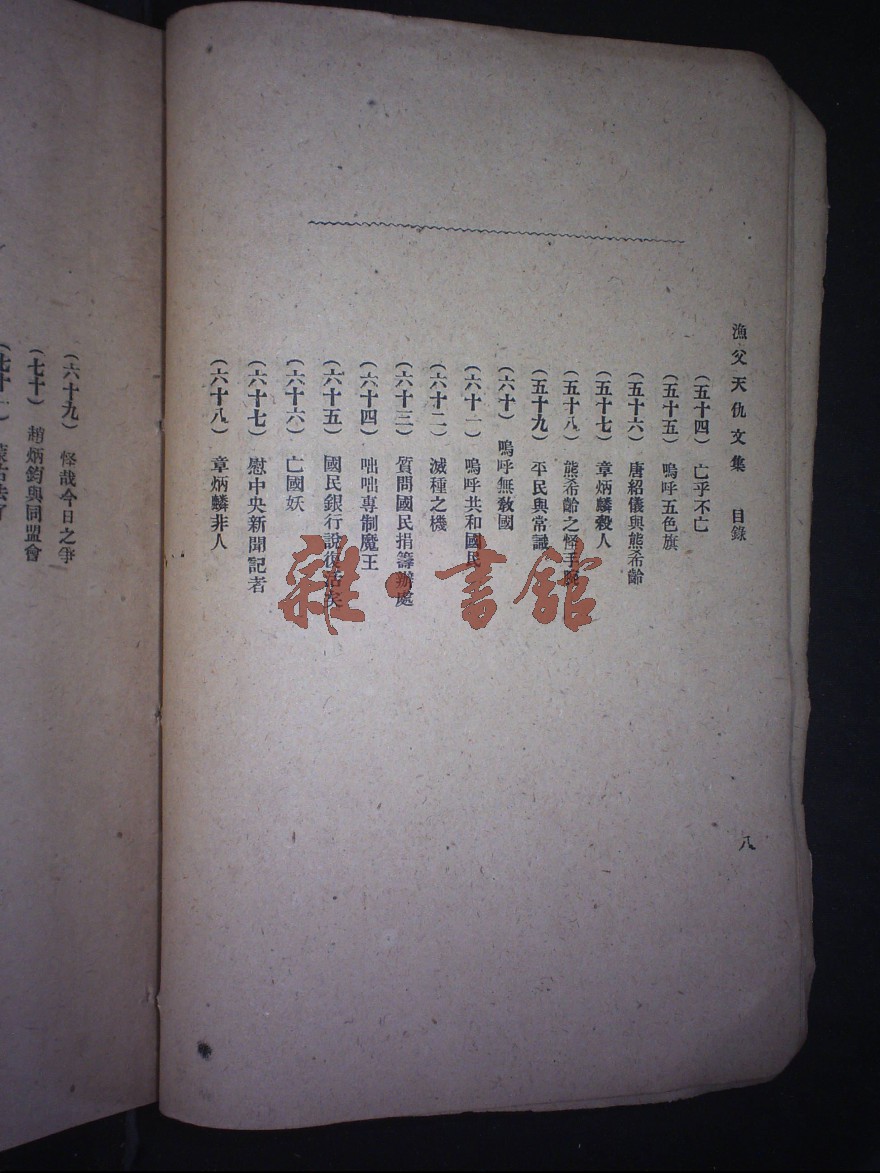 漁父天仇文集 目錄
(五十四) 亡乎不亡
(五十五) 嗚呼五色旗
(五十六) 唐紹儀與熊希齡
(五十七) 章炳麟殺人
(五十八) 熊希齡之怪手腕
(五十九) 平民與常識
(六十) 嗚呼無敎國
(六十一) 嗚呼共和國民
(六十二) 滅種之機
(六十三) 質問國民捐籌辦處
(六十四) 咄咄專制魔王
(六十五) 國民銀行說復活矣
(六十六) 亡國妖
(六十七) 慰中央新聞記者
(六十八) 章炳麟非人
八
(六十九) 怪哉今日之爭
(七十) 趙炳鈞與同盟會
(七十一)
雜·書館